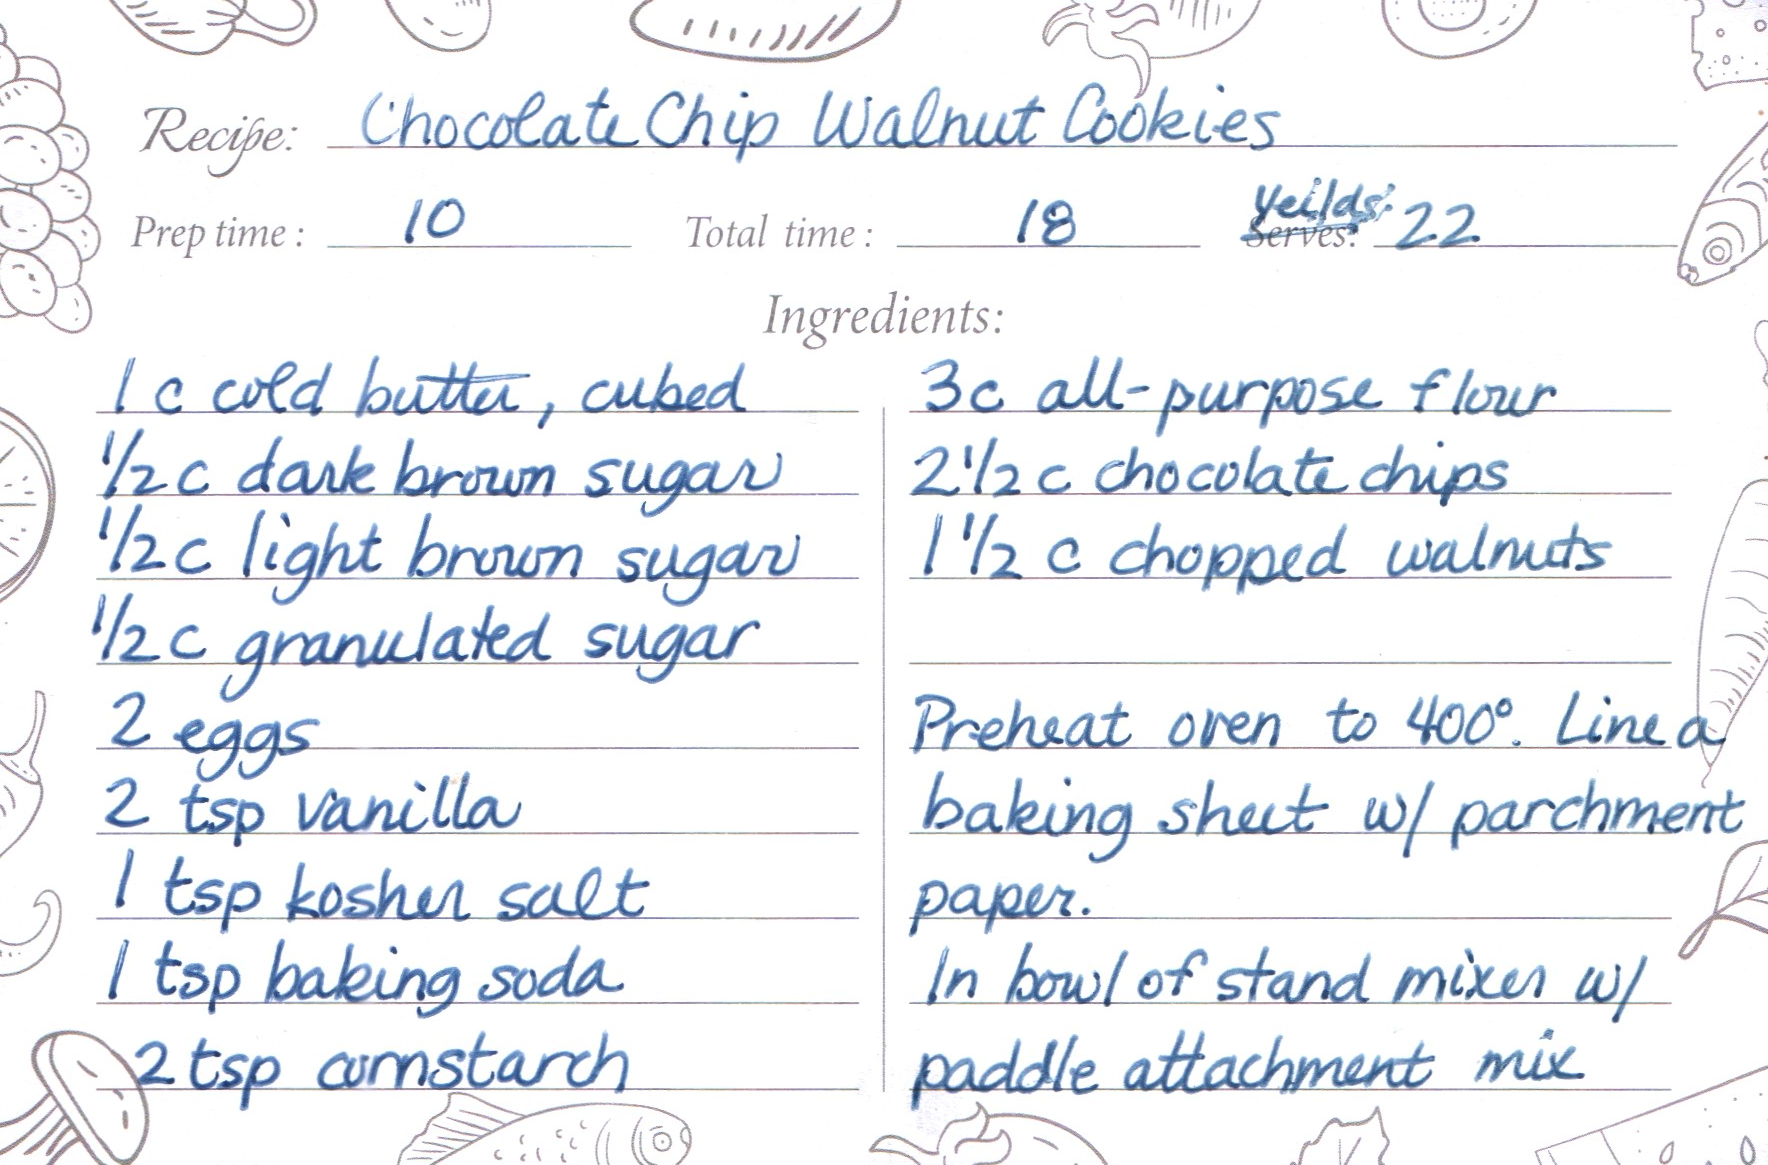 Recipe: Chocolate Chip Walnut Cookies
Prep time: 10 Total time: 18 Yeilds: Serves: 22
Ingredients:
1 c cold butter, cubed
1/2 c dark brown sugar
1/2 c light brown sugar
1/2 c granulated sugar
2 eggs
2 tsp vanilla
1 tsp kosher salt
1 tsp baking soda
2 tsp cornstarch
3c all-purpose flour
2 1/2 c chocolate chips
1 1/2 c chopped walnuts
Preheat oven to 400°. Line a
baking sheet w/ parchment
paper.
In bowl of stand mixer w/
paddle attachment mix